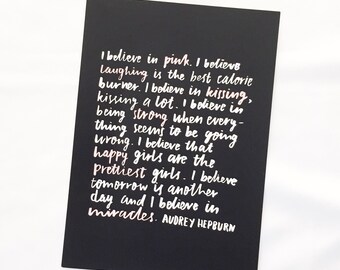 I believe in pink. I believe
laughing is the best calorie
burner. I believe in kissing,
kissing a lot. I believe in
being strong when every-
thing seems to be going
wrong. I believe that
happy girls are the
prettiest girls. I believe
tomorrow is another
day and I believe in
miracles. AUDREY HEPBURN